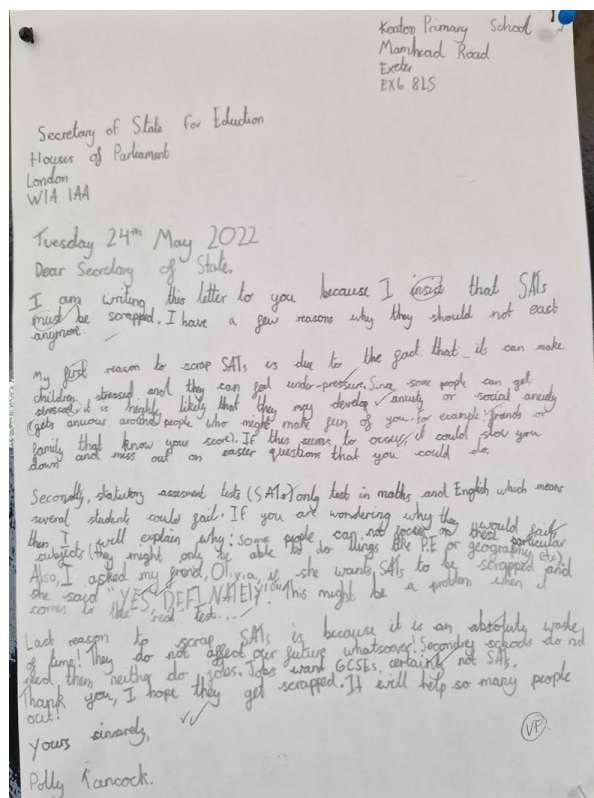 Kenton Primary School
Mamhead Road
Exeter
EX6 8LS
Secretary of State for Eduction
Houses of Parliament
London
W1A 1AA
Tuesday 24th May 2022
Dear Secretary of State,
I am writing this letter to you because I insist that SATs
must be scrapped. I have a few reasons why they should not exist
anymore.
My first reason to scrap SATs is due to the fact that it can make
children stressed and they can feel under-pressure. Since some people can get
stressed, it is highly likely that they may develop anxiety or social anxiety
(gets anxious around people who might make fun of you for example: friends or
family that know your score). If this seems to occur, it could slow you
down and miss out on easier questions that you could do.
Secondly, statutory assesment tests (SATs) only test in maths and English which means
several students could fail. If you are wondering why they would fail,
then I will explain why: some people can not focus on these particular
subjects (they might only be able to do things like P.E or geography etc)
Also, I asked my friend, Olivia, if she wants SATs to be scrapped and
she said "YES, DEFINATELY!" This might be a problem when it
comes to the real test...
Last reason to scrap SATs is because it is an absolute waste
of time! They do not affect our future whatsoever! Secondry schools do not
need them neither do jobs. Jobs want GCSEs, certainly not SATs.
Thank you, I hope they get scrapped. It will help so many people
out!
Yours sincerely,
VF
Polly Tancock.